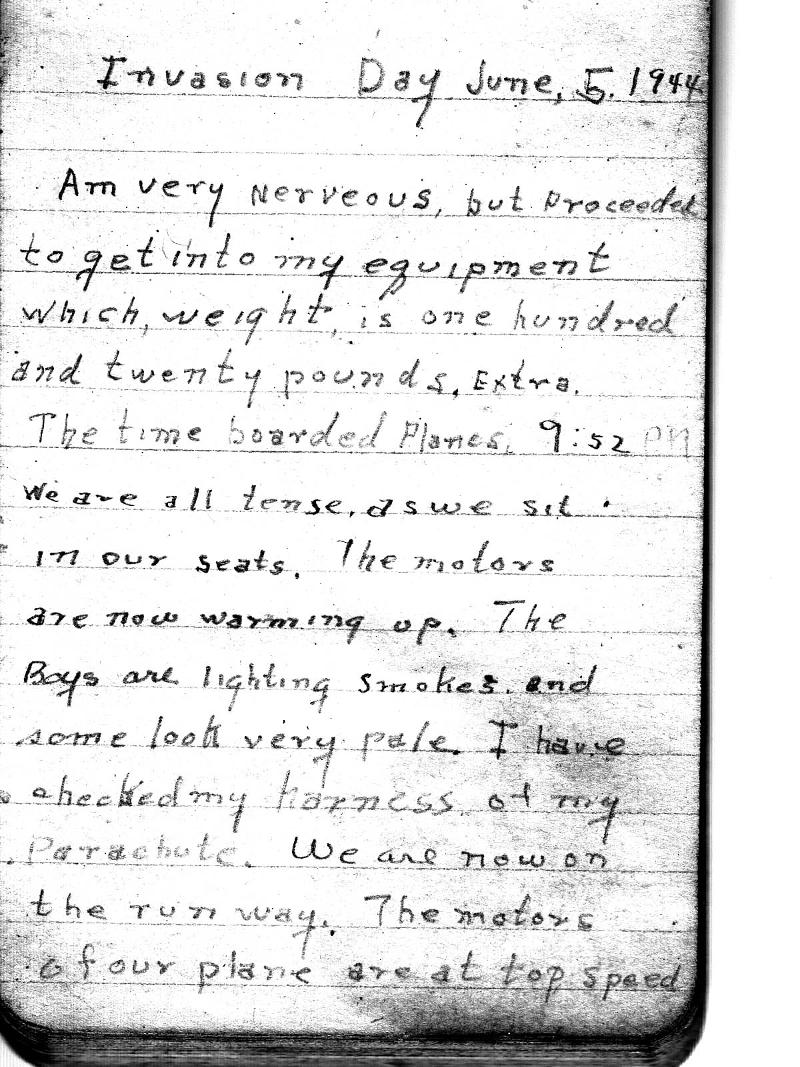 Invasion Day June, 5. 1944
Am very Nerveous, but Proceeded
to get into my equipment
which, weight, is one hundred
and twenty pounds. Extra.
The time boarded Planes. 9:52 PM
We are all tense, as we sit
in our seats. The motors
are now warming up. The
Boys are lighting smokes. and
some look very pale. I have
checked my harness of my
Parachute. We are now on
the run way. The motors
of our plane are at top speed